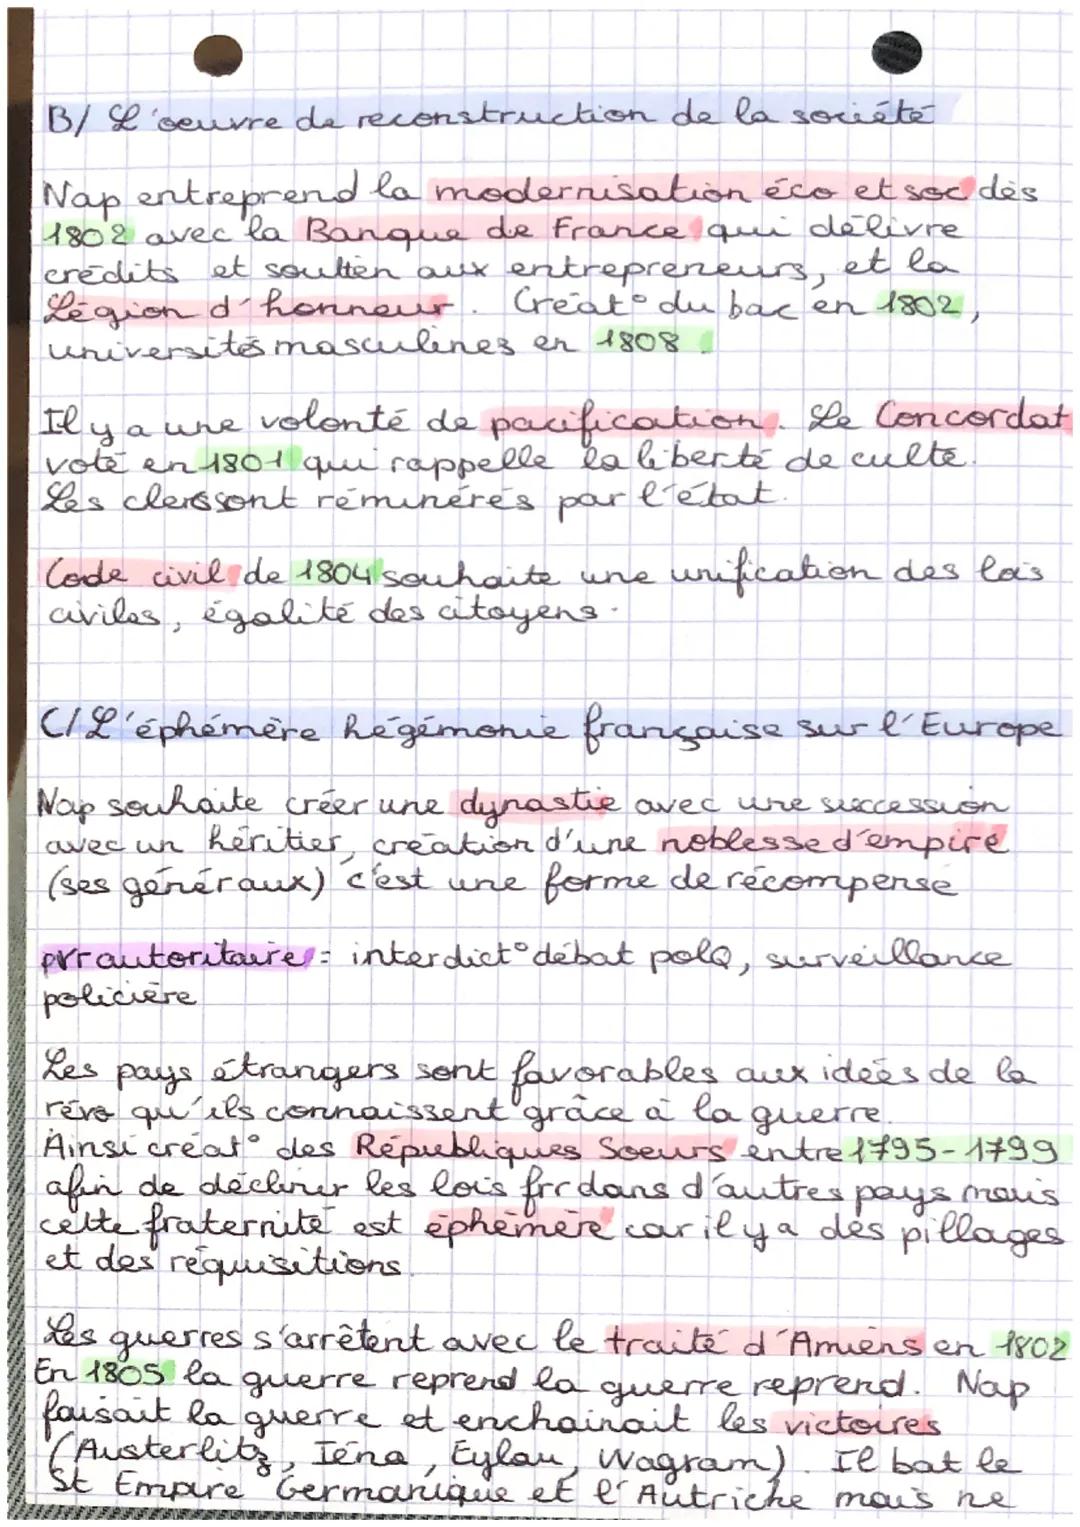 B/ L'oeuvre de reconstruction de la société
Nap entreprend la modernisation éco et soc dès
1802 avec la Banque de France qui délivre
crédits et soutien aux entrepreneurs, et la
Légion d'honneur. Créat° du bac en 1802,
universités masculines en 1808.
Il y a une volonté de pacification. Le Concordat
voté en 1801 qui rappelle la liberté de culte.
Les clers sont réminérés par l'état.
Code civil de 1804 souhaite une unification des lois
civiles, égalité des citoyens.
C/ L'éphémère hégémonie française sur l'Europe
Nap souhaite créer une dynastie avec une succession
avec un héritier, création d'une noblesse d'empire
(ses généraux) c'est une forme de récompense
pvr autoritaire: interdict° débat polQ, surveillance
policière
Les pays étrangers sont favorables aux idées de la
révo qu'ils connaissent grâce à la guerre.
Ainsi créat° des Républiques Soeurs entre 1795-1799
afin de décliner les lois frr dans d'autres pays mais
cette fraternité est éphémère car il y a des pillages
et des réquisitions.
Les guerres s'arrêtent avec le traité d'Amiens en 1802
En 1805 la guerre reprend la guerre reprend. Nap
faisait la guerre et enchainait les victoires
(Austerlitz, Iéna, Eylau, Wagram). Il bat le
St Empire Germanique et l'Autriche mais ne